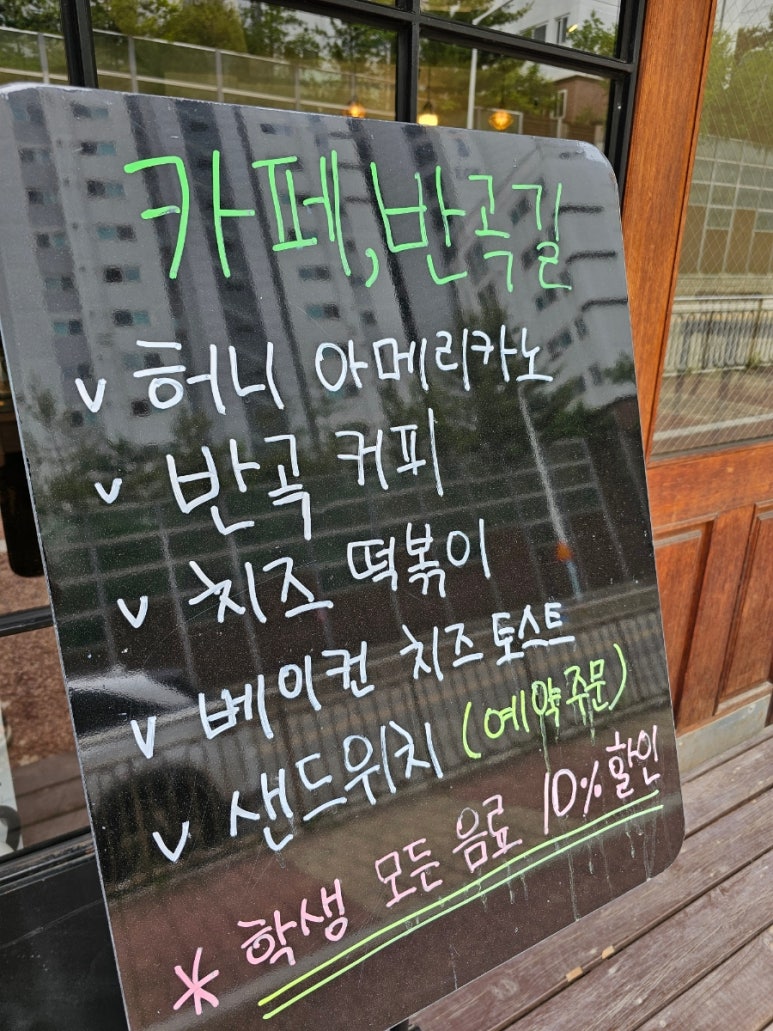 카페, 반곡길
v 허니 아메리카노
v 반곡 커피
v 치즈 떡볶이
v 베이컨 치즈토스트
v 샌드위치 (예약주문)
* 학생 모든 음료 10% 할인